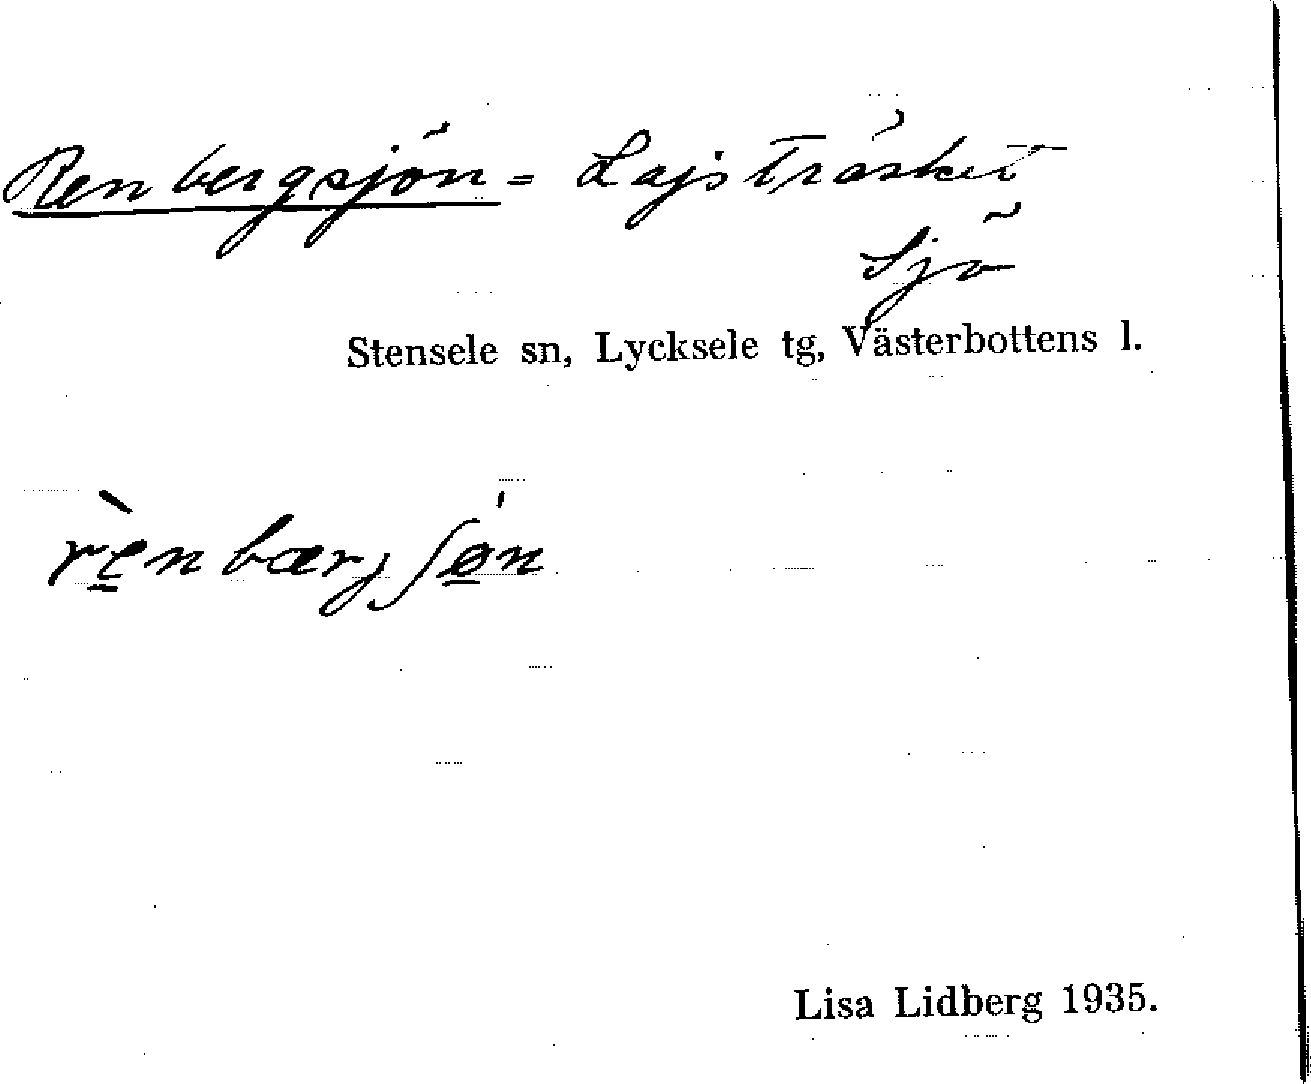 Renbergsjön = Lajsträsket
Sjö
Stensele sn, Lycksele tg, Västerbottens l.
rè̱nbærjʃǿ̱n
Lisa Lidberg 1935.